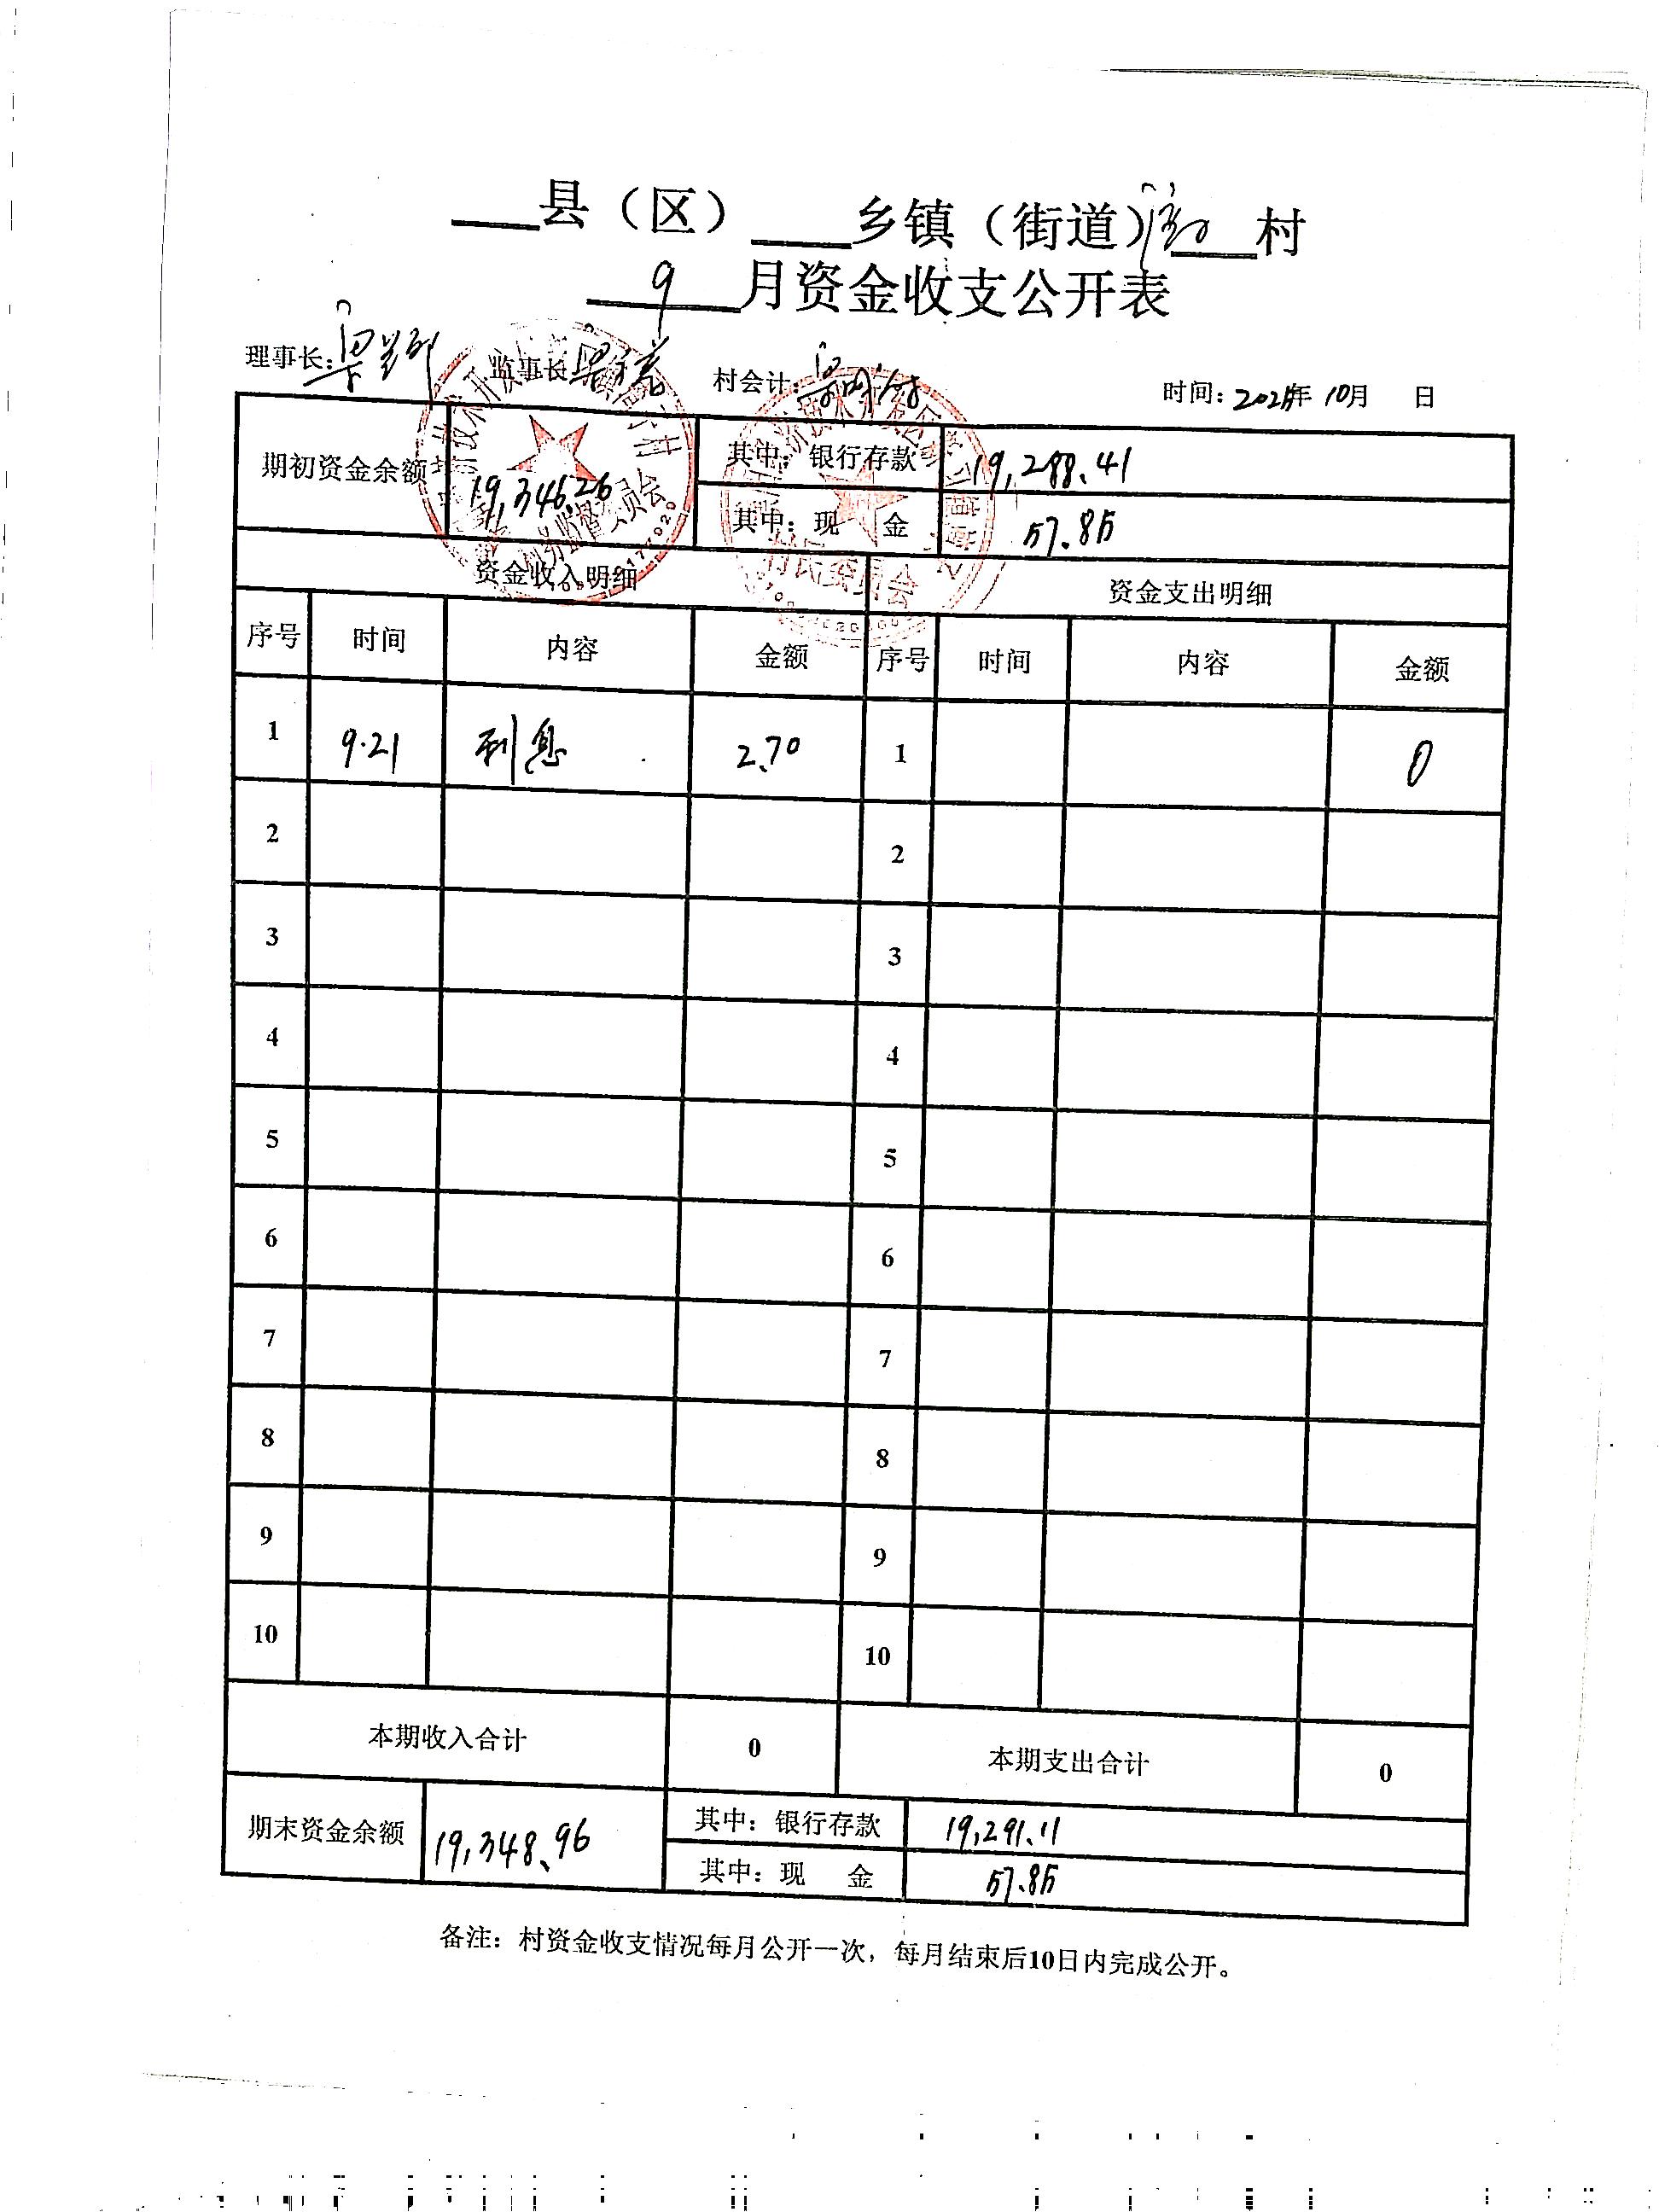 县（区） 乡镇（街道） 村
9 月资金收支公开表
理事长： 监事长 村会计： 时间： 年 10月 日
期初资金余额 19,346.26 其中：银行存款 19,288.41
其中：现 金 57.85
资金收入明细 资金支出明细
序号 时间 内容 金额 序号 时间 内容 金额
1 9.21 利息 2.70 1 0
2 2
3 3
4 4
5 5
6 6
7 7
8 8
9 9
10 10
本期收入合计 0 本期支出合计 0
期末资金余额 19,348.96 其中：银行存款 19,291.11
其中：现 金 57.85
备注：村资金收支情况每月公开一次，每月结束后10日内完成公开。